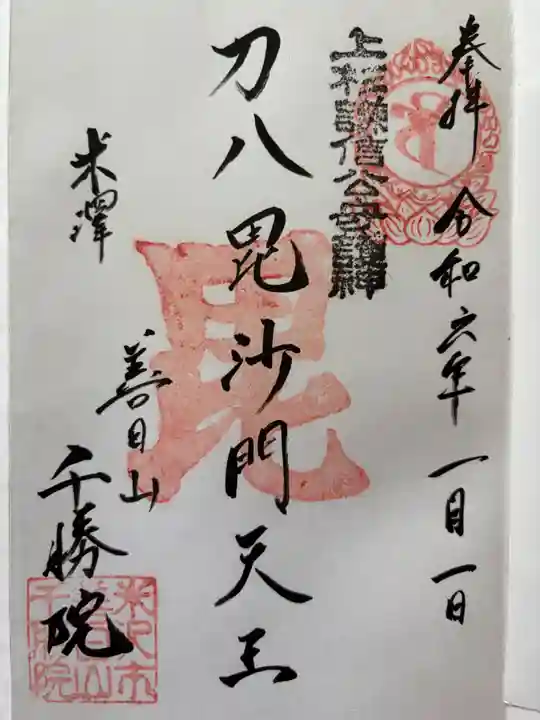 奉拝 令和六年 一月一日
上杉謙信公守護神
刀八毘沙門天王
毘
米澤
善日山
千勝院
米沢市
善日山
千勝院